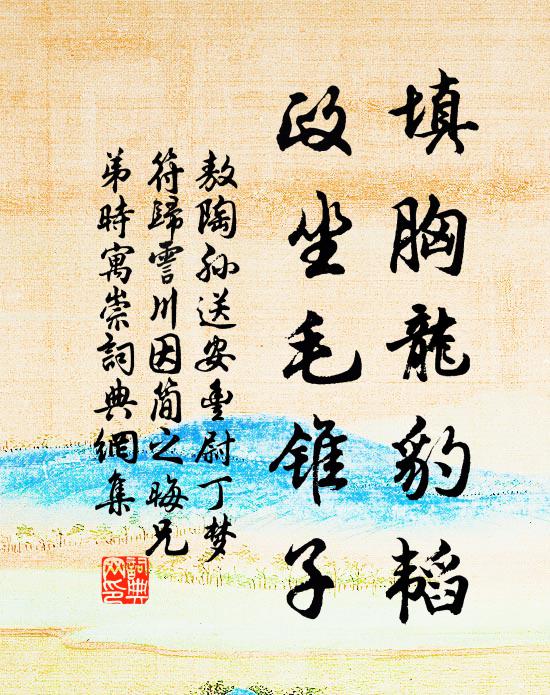 填胸龍豹韜
政坐毛錐子
敖陶孫送安豊尉丁梦
符歸霅川因简之晦兄
弟時寓崇詞典網集
詞典
网印